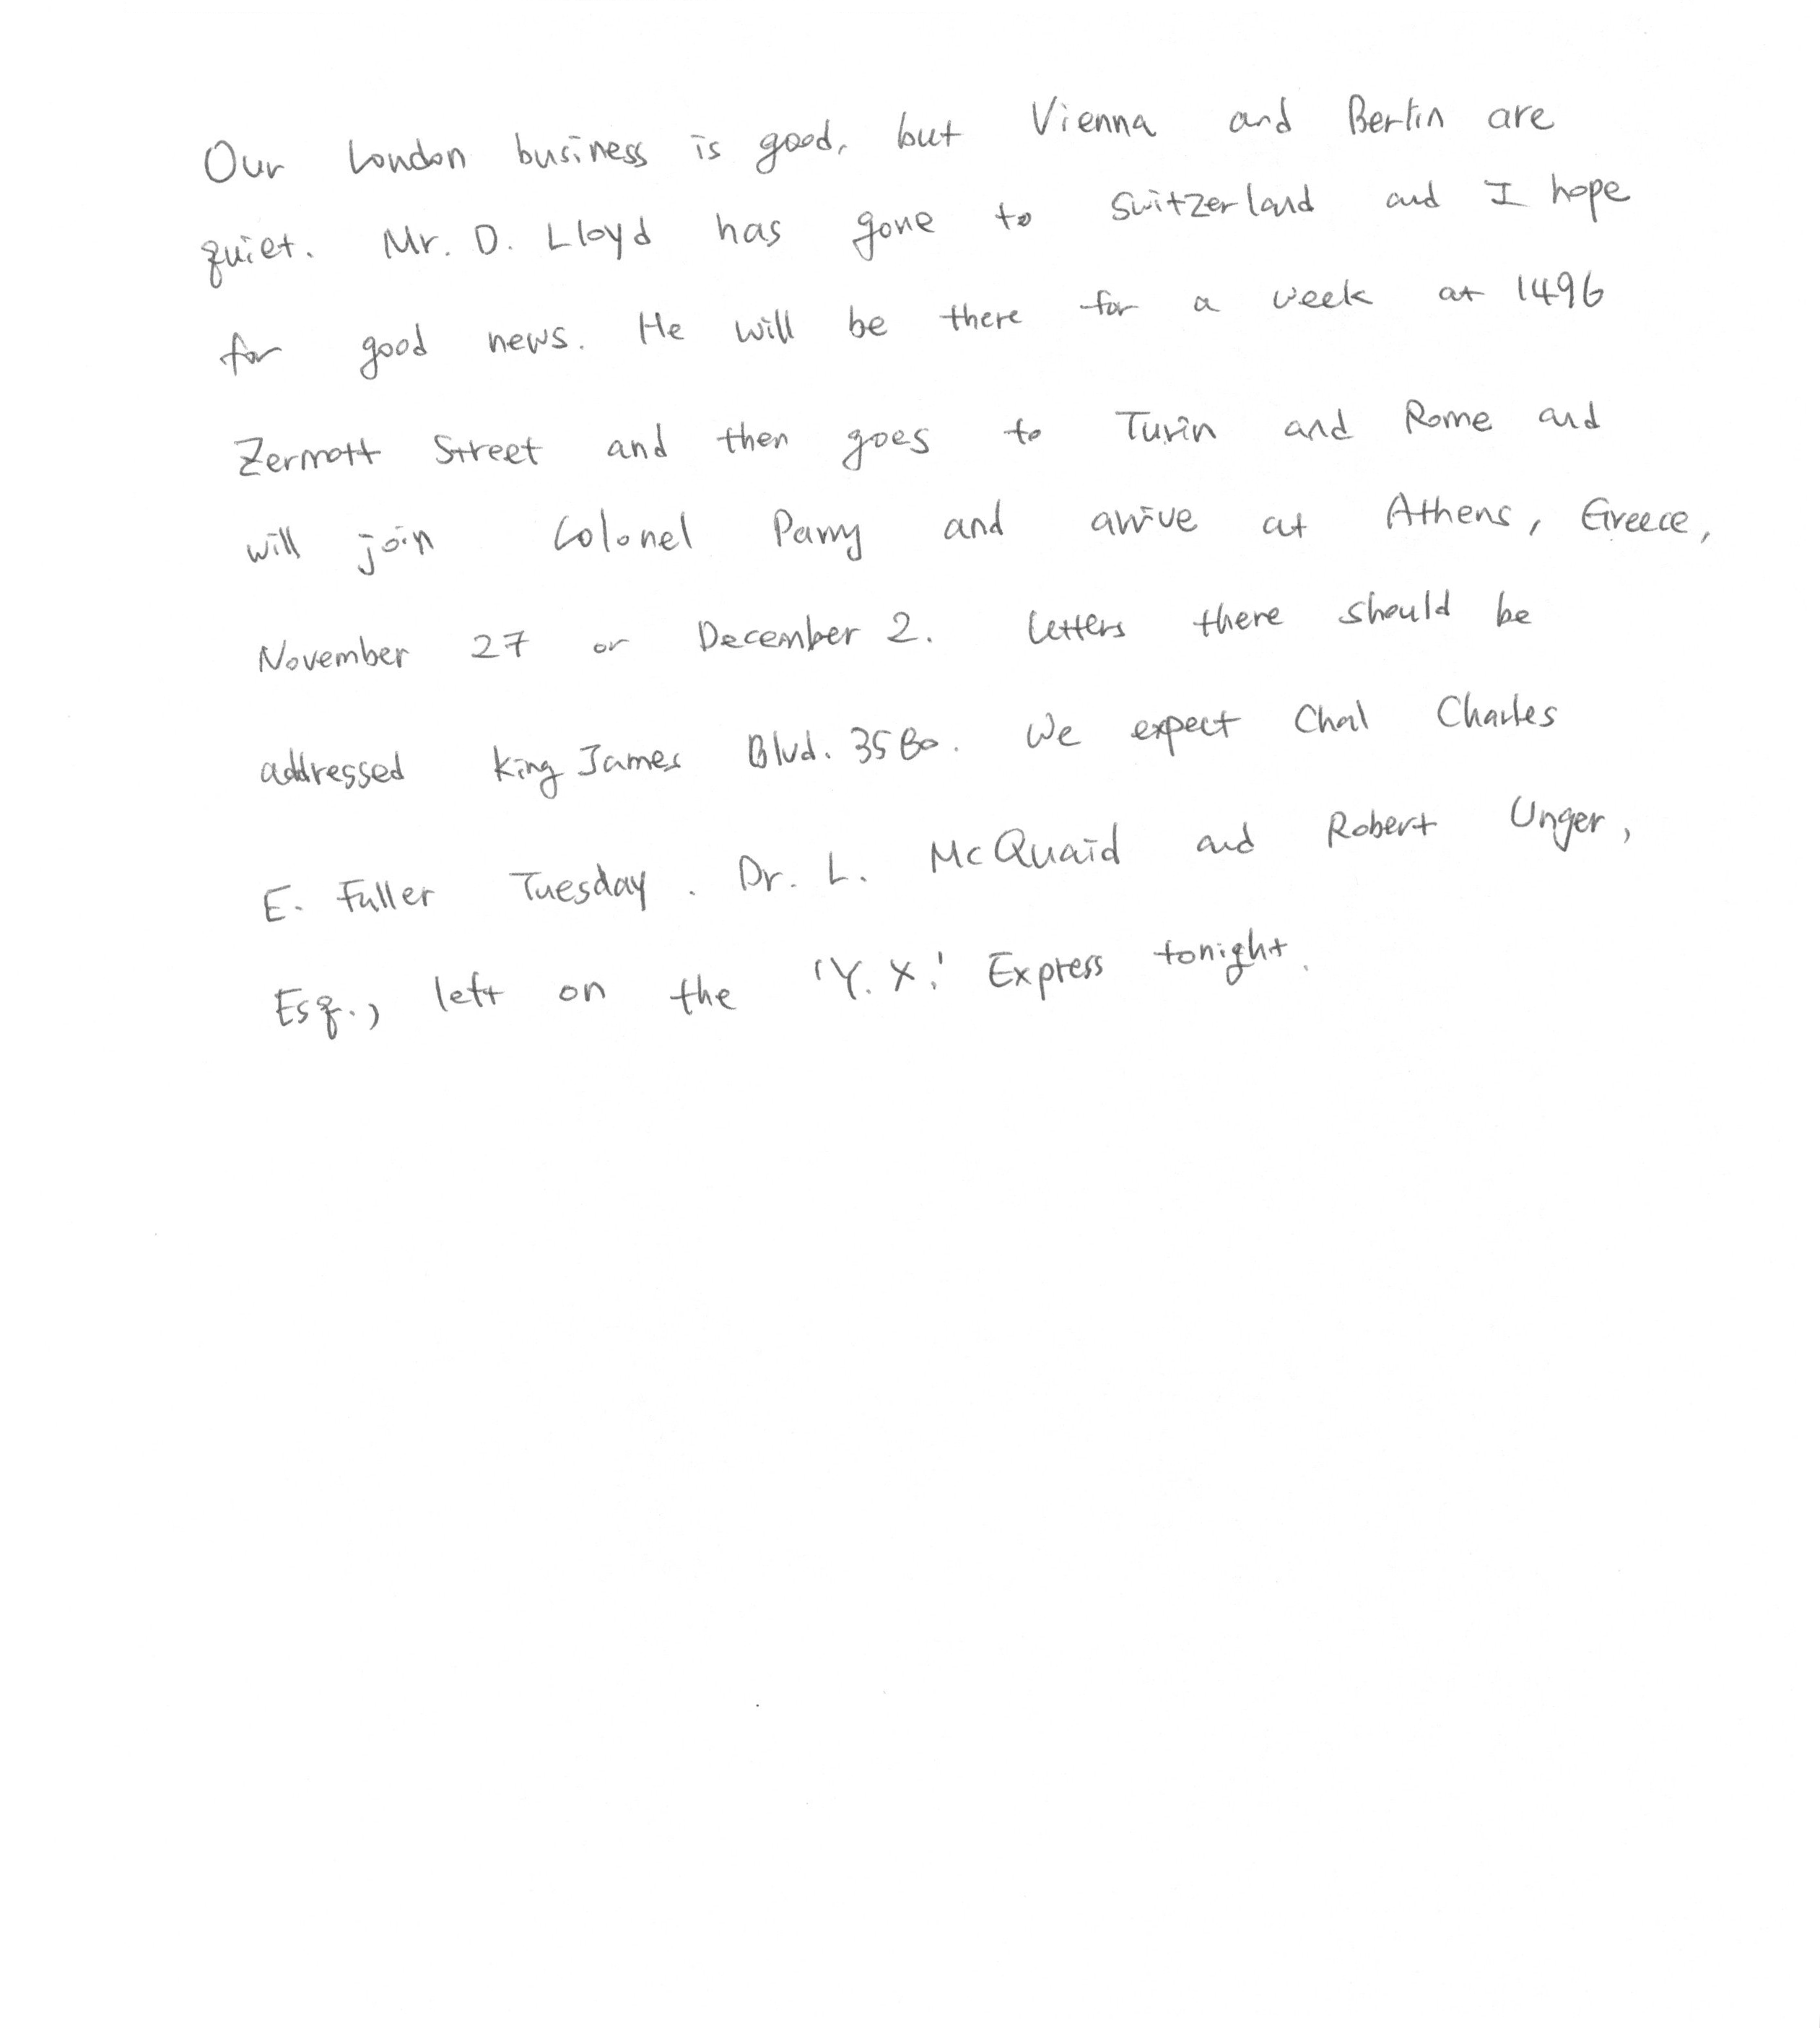 Our London business is good, but Vienna and Berlin are
quiet. Mr. D. Lloyd has gone to Switzerland and I hope
for good news. He will be there for a week at 1496
Zermott Street and then goes to Turin and Rome and
will join Colonel Parry and arrive at Athens, Greece,
November 27 or December 2. Letters there should be
addressed King James Blvd. 3580. We expect Chal Charles
E. Fuller Tuesday. Dr. L. McQuaid and Robert Unger,
Esq., left on the 'Y.X.' Express tonight.